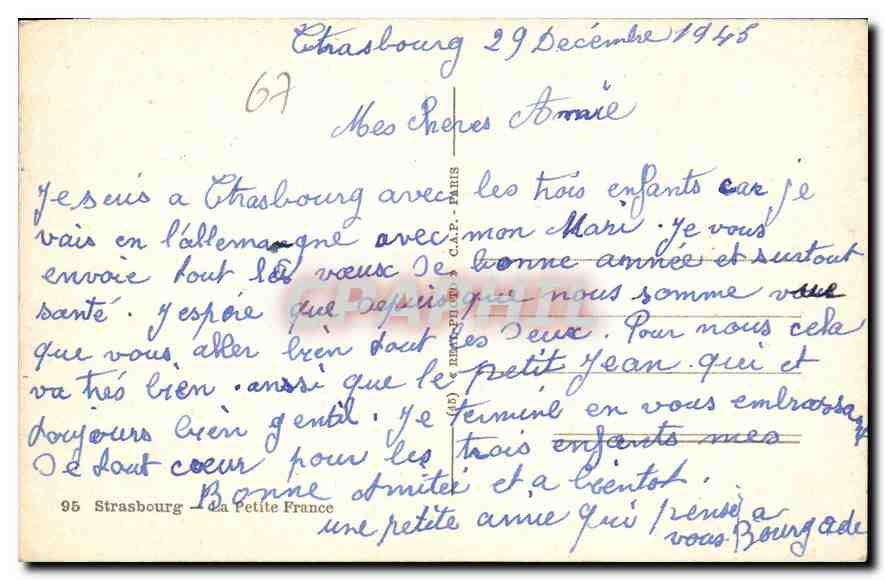 Strasbourg 29 Décembre 1945
67
Mes Chères Amie
Je suis a Strasbourg avec les trois enfants car je
vais en l'allemangne avec mon Mari. Je vous
envoie tout les vœux de bonne année et surtout
santé. J'espére que depuis que nous somme vue
que vous aller bien tout les deux. Pour nous cela
va trés bien. aussi que le petit Jean qui et
toujours bien gentil. Je terminé en vous embrassant
de tout cœur pour les trois enfants mes
Bonne Amitié et a bientot.
une petite amie qui pense a
vous Bourgade
95 Strasbourg - La Petite France
(45) « REAL-PHOTO » C.A.P. - PARIS
CPARHTI